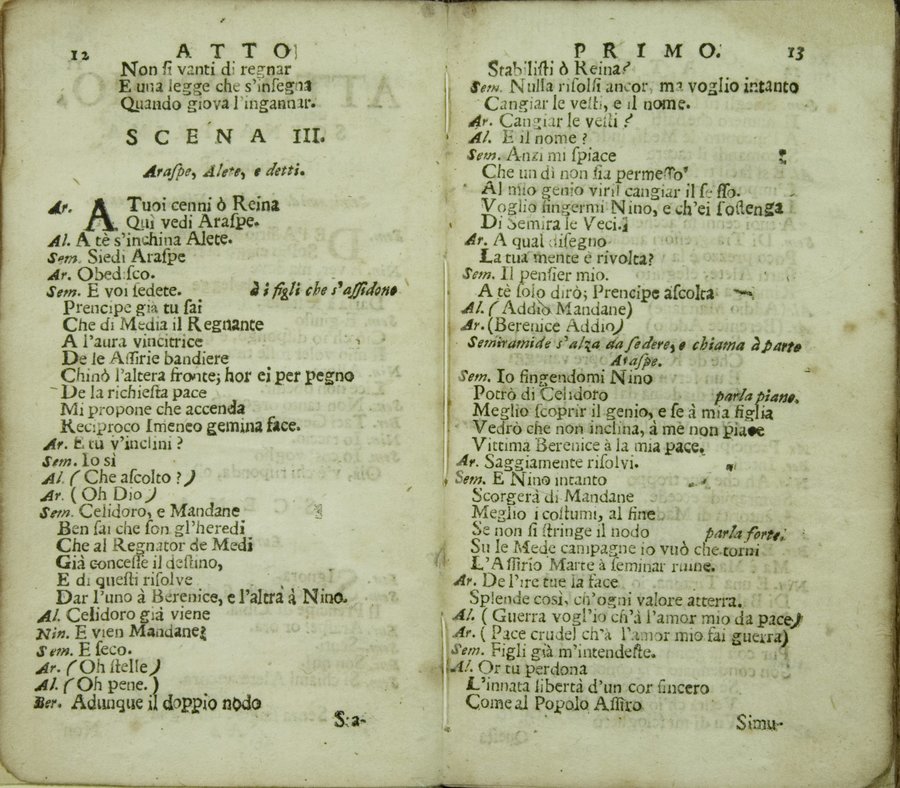 12 ATTO
Non ſi vanti di regnar
E una legge che s'inſegna
Quando giova l'ingannar.
SCENA III.
Araſpe, Alete, e detti.
Ar. A Tuoi cenni ò Reina
Quì vedi Araſpe.
Al. A tè s'inchina Alete.
Sem. Siedi Araſpe
Ar. Obediſco.
Sem. E voi ſedete. à i figli che s'aſſidono
Prencipe già tu ſai
Che di Media il Regnante
A l'aura vincitrice
De le Aſſirie bandiere
Chinò l'altera fronte; hor ei per pegno
De la richieſta pace
Mi propone che accenda
Reciproco Imeneo gemina face.
Ar. E tù v'inclini?
Sem. Io sì
Al. (Che aſcolto?)
Ar. (Oh Dio)
Sem. Celidoro, e Mandane
Ben ſai che ſon gl'heredi
Che al Regnator de Medi
Già conceſſe il deſtino,
E di queſti riſolve
Dar l'uno à Berenice, e l'altrà à Nino.
Al. Celidoro già viene
Nin. E vien Mandane?
Sem. E ſeco.
Ar. (Oh ſtelle)
Al. (Oh pene.)
Ber. Adunque il doppio nodo
Sta-
PRIMO. 13
Stabiliſti ò Reina?
Sem. Nulla riſolſi ancor, ma voglio intanto
Cangiar le veſti, e il nome.
Ar. Cangiar le veſti?
Al. E il nome?
Sem. Anzi mi ſpiace
Che un dì non ſia permeſſo
Al mio genio viril cangiar il ſeſſo.
Voglio fingermi Nino, e ch'ei ſoſtenga
Di Semira le Veci.
Ar. A qual diſegno
La tua mente è rivolta?
Sem. Il penſier mio.
A tè ſolo dirò; Prencipe aſcolta
Al. (Addio Mandane)
Ar. (Berenice Addio)
Semiramide s'alza da ſedere, e chiama à parte
Araſpe.
Sem. Io fingendomi Nino
Potrò di Celidoro parla piano.
Meglio ſcoprir il genio, e ſe à mia figlia
Vedrò che non inclina, à mè non piace
Vittima Berenice à la mia pace.
Ar. Saggiamente riſolvi.
Sem. E Nino intanto
Scorgerà di Mandane
Meglio i coſtumi, al fine
Se non ſi ſtringe il nodo parla forte.
Su le Mede campagne io vuò che torni
L'Aſſirio Marte à ſeminar ruine.
Ar. De l'ire tue la face
Splende così, ch'ogni valore atterra.
Al. (Guerra vogl'io ch'à l'amor mio da pace)
Ar. (Pace crudel ch'à l'amor mio fai guerra)
Sem. Figli già m'intendeſte.
Al. Or tu perdona
L'innata libertà d'un cor ſincero
Come al Popolo Aſſiro
Simu-